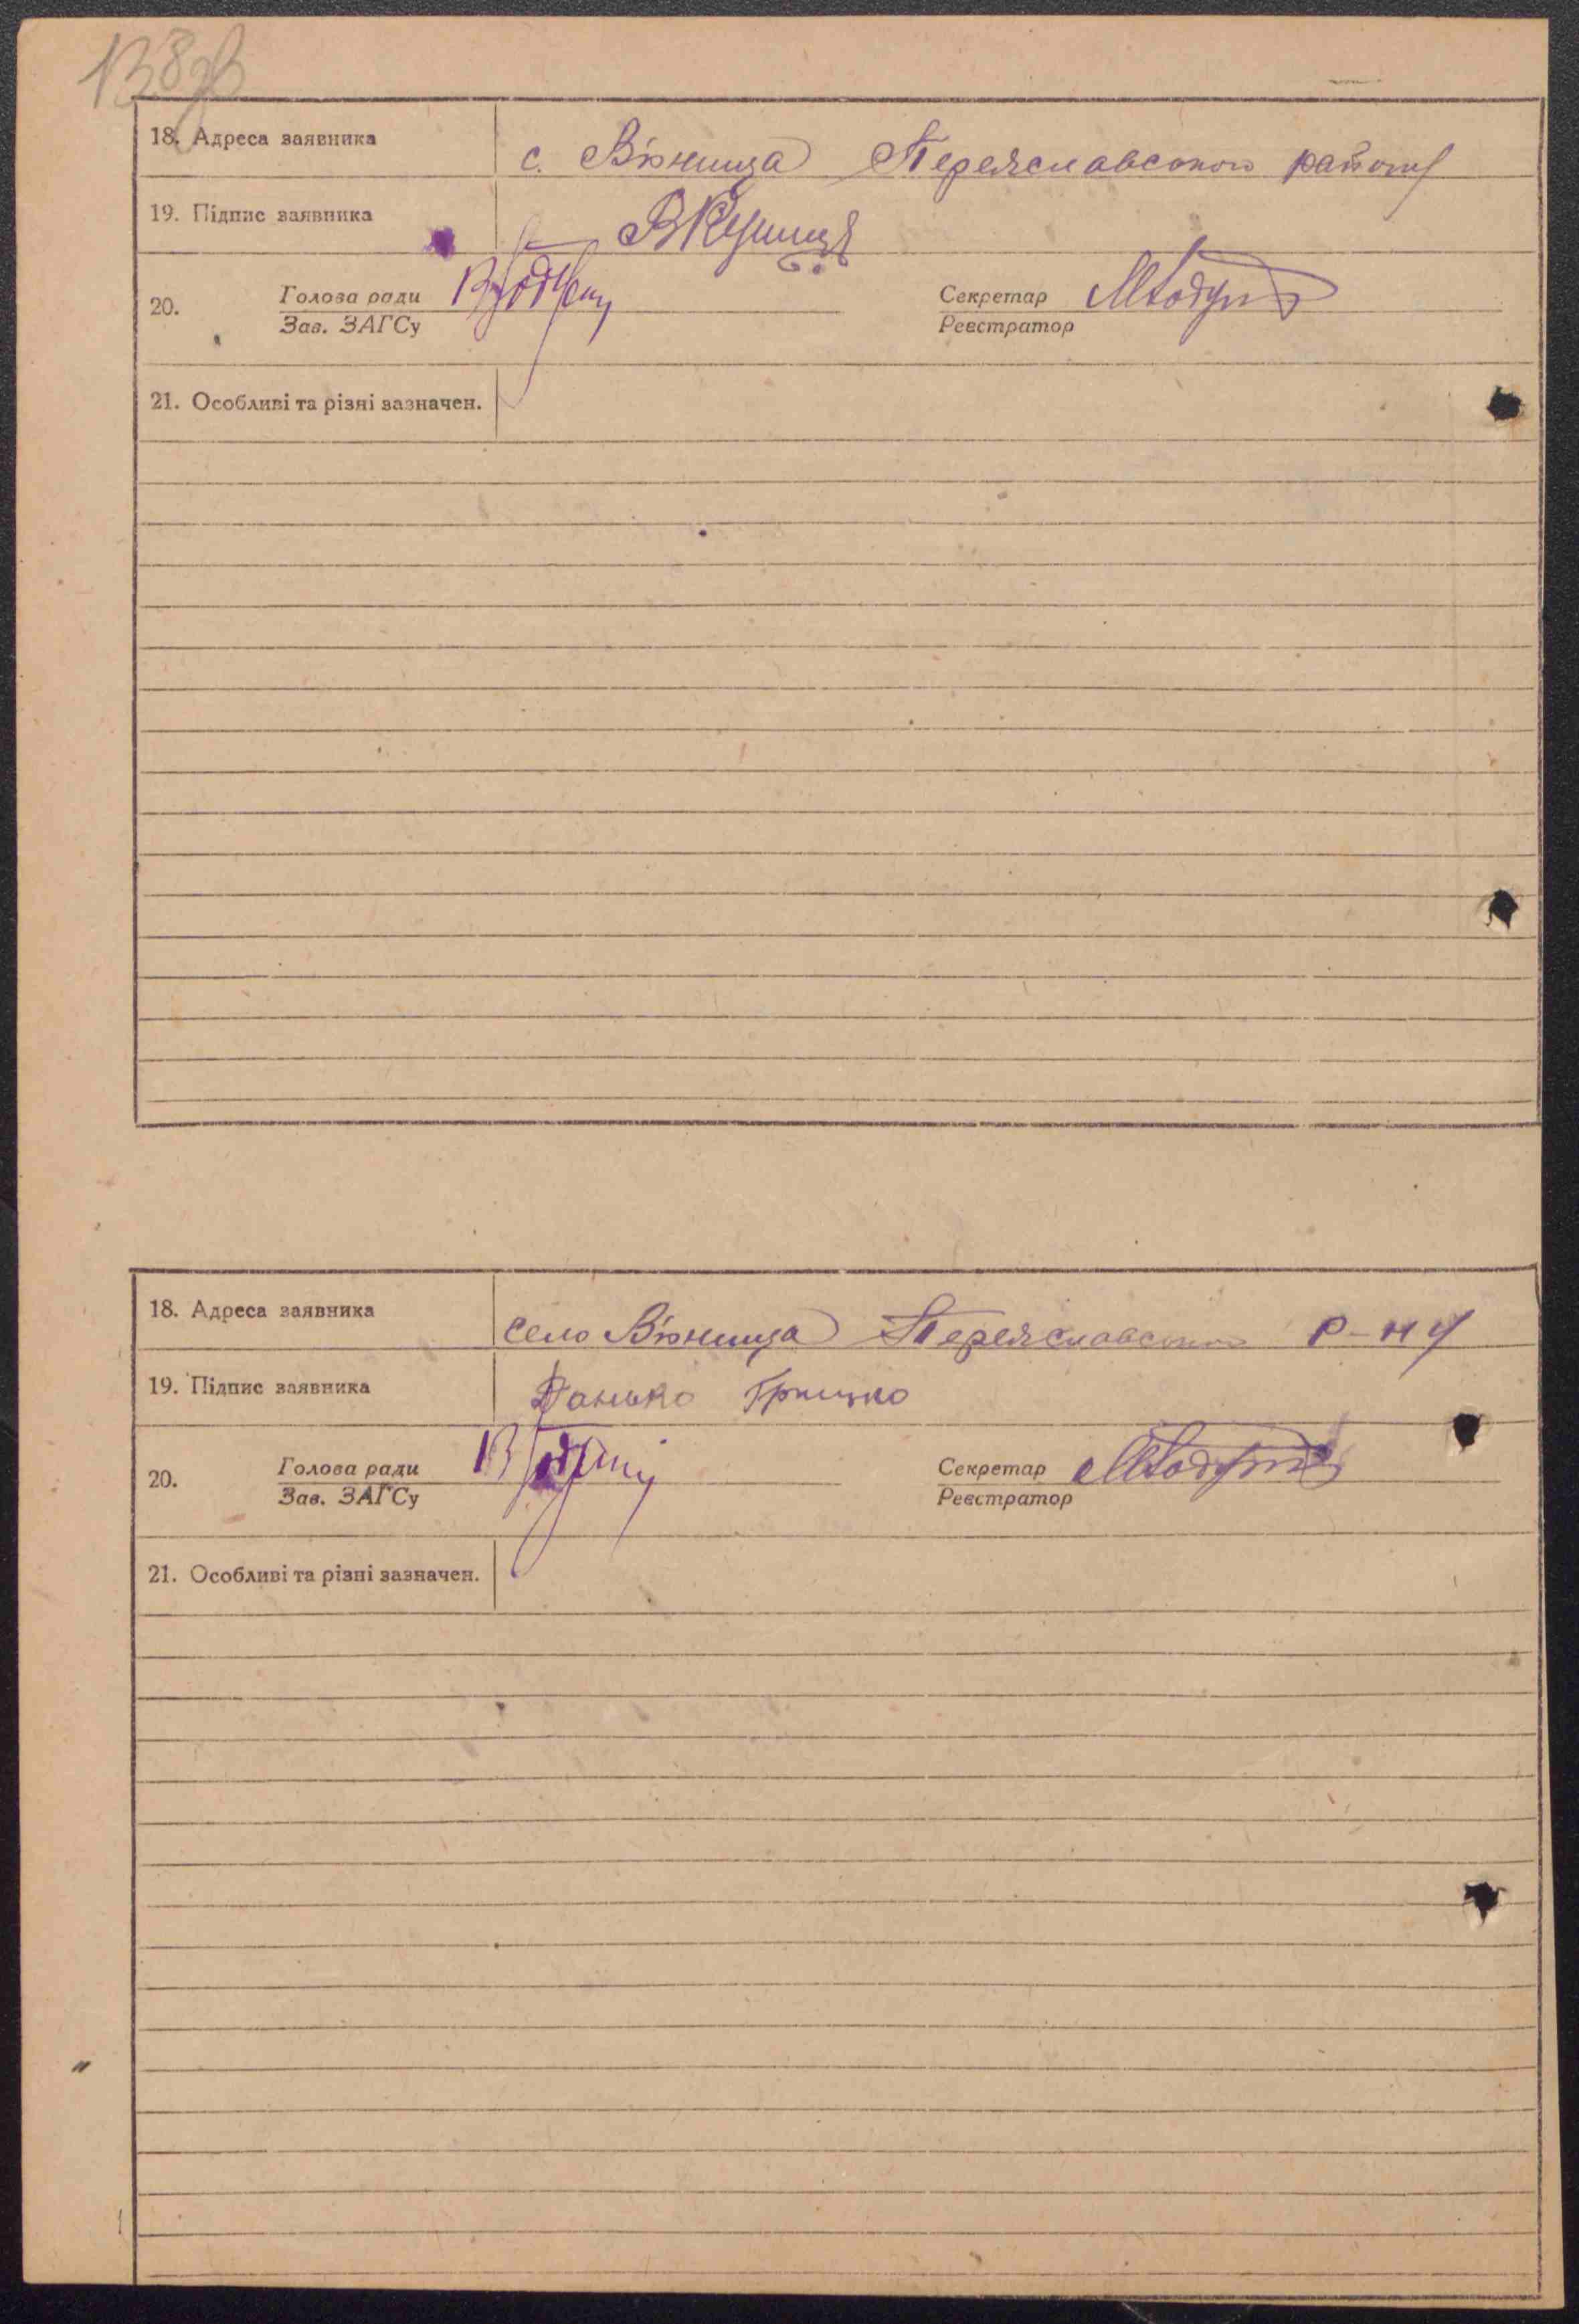 138зв
18. Адреса заявника с. Вюница Переяславського району
19. Підпис заявника
20. Голова ради Секретар
Зав. ЗАГСу Реєстратор
21. Особливі та різні зазначен.
18. Адреса заявника село Вюница Переяславського р-ну
19. Підпис заявника Данько Грицько
20. Голова ради Секретар
Зав. ЗАГСу Реєстратор
21. Особливі та різні зазначен.